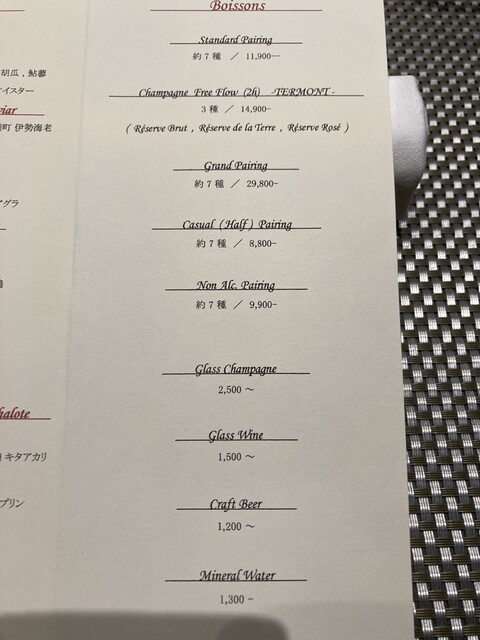 胡瓜 , 鮎蓼
イスター
viar
町 伊勢海老
グラ
halote
キタアカリ
プリン
Boissons
Standard Pairing
約 7 種 ／ 11,900−
Champagne Free Flow (2h) -TERMONT-
3 種 ／ 14,900−
( Réserve Brut , Réserve de la Terre , Réserve Rosé )
Grand Pairing
約 7 種 ／ 29,800−
Casual (Half) Pairing
約 7 種 ／ 8,800−
Non Alc. Pairing
約 7 種 ／ 9,900−
Glass Champagne
2,500 ～
Glass Wine
1,500 ～
Craft Beer
1,200 ～
Mineral Water
1,300 −